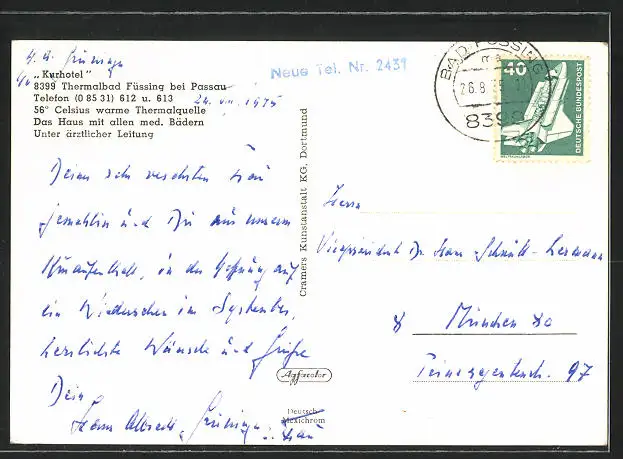 „Kurhotel"
8399 Thermalbad Füssing bei Passau
Telefon (0 85 31) 612 u. 613
56° Celsius warme Thermalquelle
Das Haus mit allen med. Bädern
Unter ärztlicher Leitung
Neue Tel. Nr. 2431
1975
Deiner sehr verehrten Frau
Gemahlin und Dir aus unserem
Kuraufenthalt, in der Hoffnung auf
ein Wiedersehen im September,
herzlichste Wünsche und Grüße
Dein
Hans Albrecht
Frau
Cramers Kunstanstalt KG, Dortmund
Agfacolor
Deutsche
Mexichrom
BAD FÜSSING
26.8.
8399
40
DEUTSCHE BUNDESPOST
WELTRAUMLABOR
Herrn
Vizepräsident Dr. Hans Schmitt-Lermann
8 München 80
97